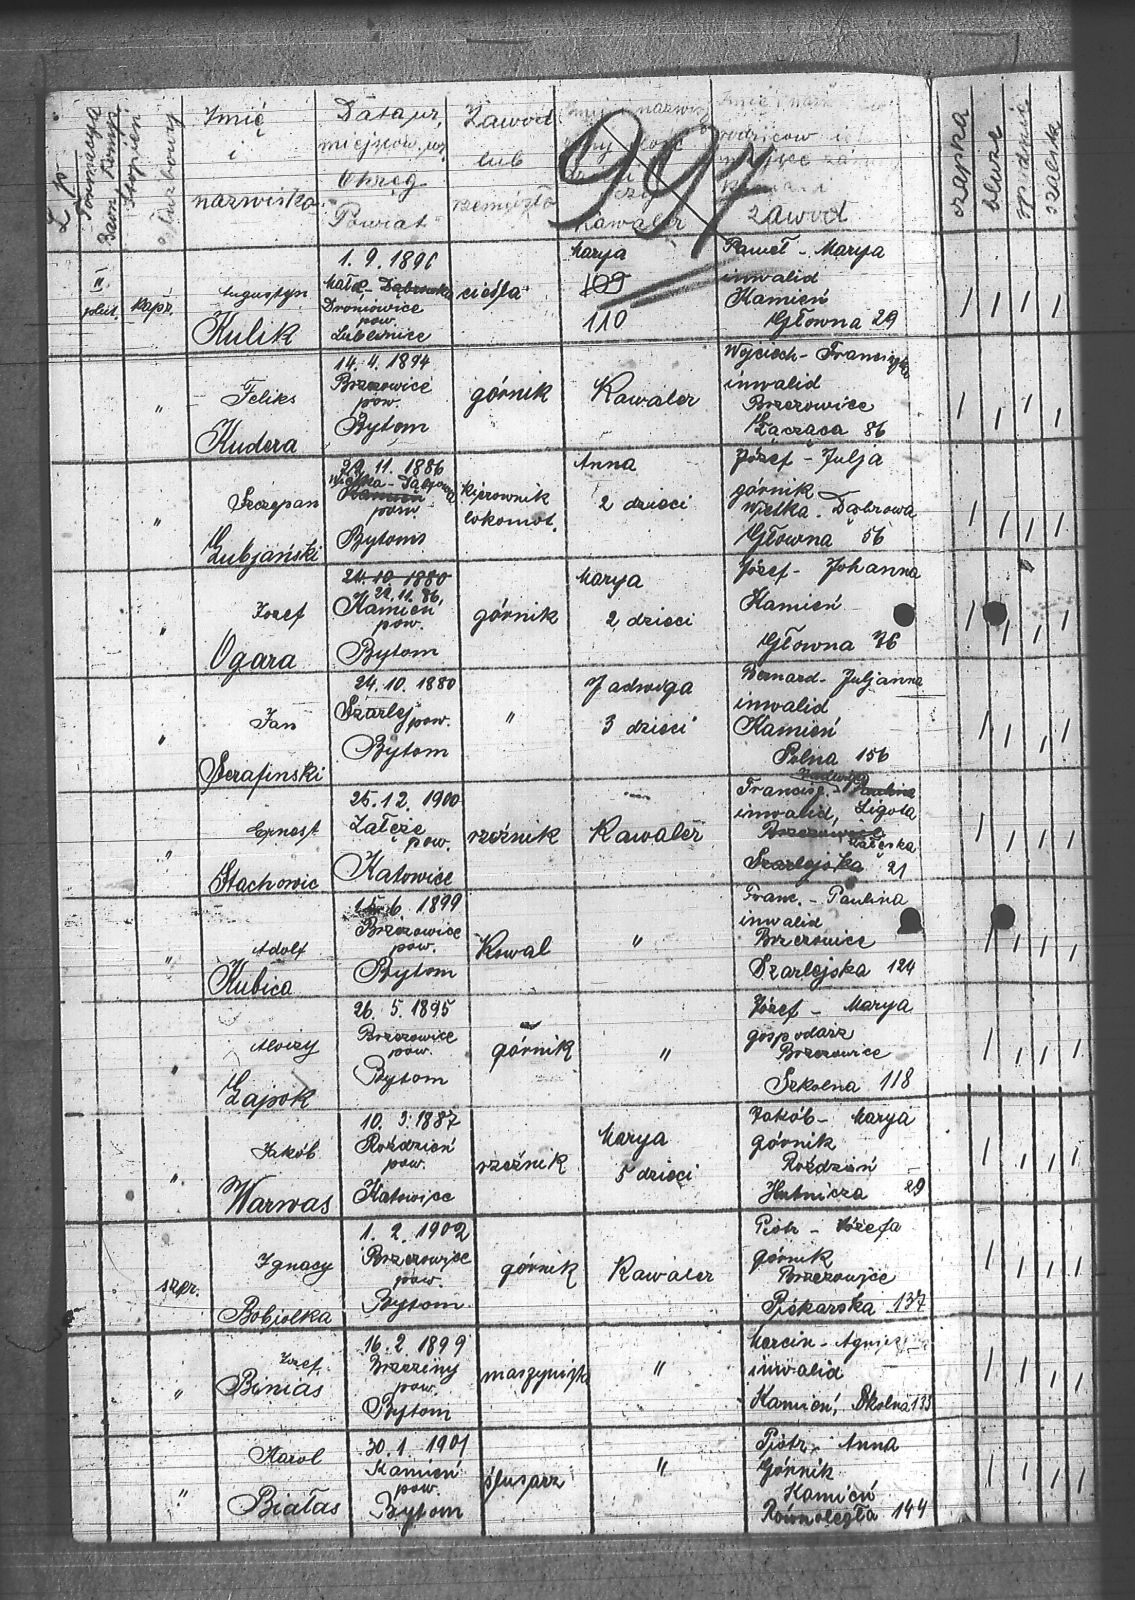 L.p.
Formacya
Baon Komp.
Stopień
służbowy
Imię
i
nazwisko
Data ur,
miejscow. ur.
Okręg
Powiat
Zawód
lub
rzemiosło
Kawaler
994
rodziców i
zawód
czapka
bluzka
spodnie
II.
plut.
kapr.
Augustyn
Kulik
1. 9. 1896
Dąbrówka
Droniowice
pow.
Lubliniec
cieśla
Marya
109
110
Paweł - Marya
inwalid
Kamień
Główna 29
"
Feliks
Kudera
14. 4. 1894
Brzozowice
pow.
Bytom
górnik
Kawaler
Wojciech - Franciszka
inwalid
Brzezowice
Łącząca 86
"
Szczepan
Łubjański
22. 11. 1886
Wielka - Dąbrowa
Kamień
pow.
Bytom
kierownik
lokomot.
Anna
2 dzieci
Józef - Julja
górnik
Wielka. Dąbrowa
Główna 56
"
Józef
Ogara
24. 10. 1880
22. 11. 86.
Kamień
pow.
Bytom
górnik
Marya
2 dzieci
Józef - Johanna
Kamień
Główna 76
"
Jan
Serafinski
24. 10. 1880
Szarlej
pow.
Bytom
"
Jadwiga
3 dzieci
Bernard - Juljanna
inwalid
Kamień
Polna 156
"
Ernest
Stachowic
25. 12. 1900
Załęże
pow.
Katowice
rzeźnik
Kawaler
Jadwiga
Francisz. - Paulina
inwalid, Ligota
Brzezowice
Szarlejska 21
"
Adolf
Kubica
15. 6. 1899
Brzezowice
pow.
Bytom
Kowal
"
Franc. - Paulina
inwalid
Brzezowice
Szarlejska 124
"
Aloizy
Gajpok
26. 5. 1895
Brzezowice
pow.
Bytom
górnik
"
Józef - Marya
gospodarz
Brzezowice
Szkolna 118
"
Jakób
Warwas
10. 3. 1887
Roździeń
pow.
Katowice
rzeźnik
Marya
5 dzieci
Jakób - Marya
górnik
Roździeń
Hutnicza 29
szer.
Ignacy
Bobiolka
1. 2. 1902
Brzezowice
pow.
Bytom
górnik
Kawaler
Piotr - Józefa
górnik
Brzezowice
Piekarska 137
"
Józef
Binias
16. 2. 1899
Brzeziny
pow.
Bytom
maszynista
"
Marcin - Agnieszka
inwalid
Kamień, Szkolna 133
"
Karol
Białas
30. 1. 1901
Kamień
pow.
Bytom
ślusarz
"
Piotr - Anna
Górnik
Kamień
Równoległa 144